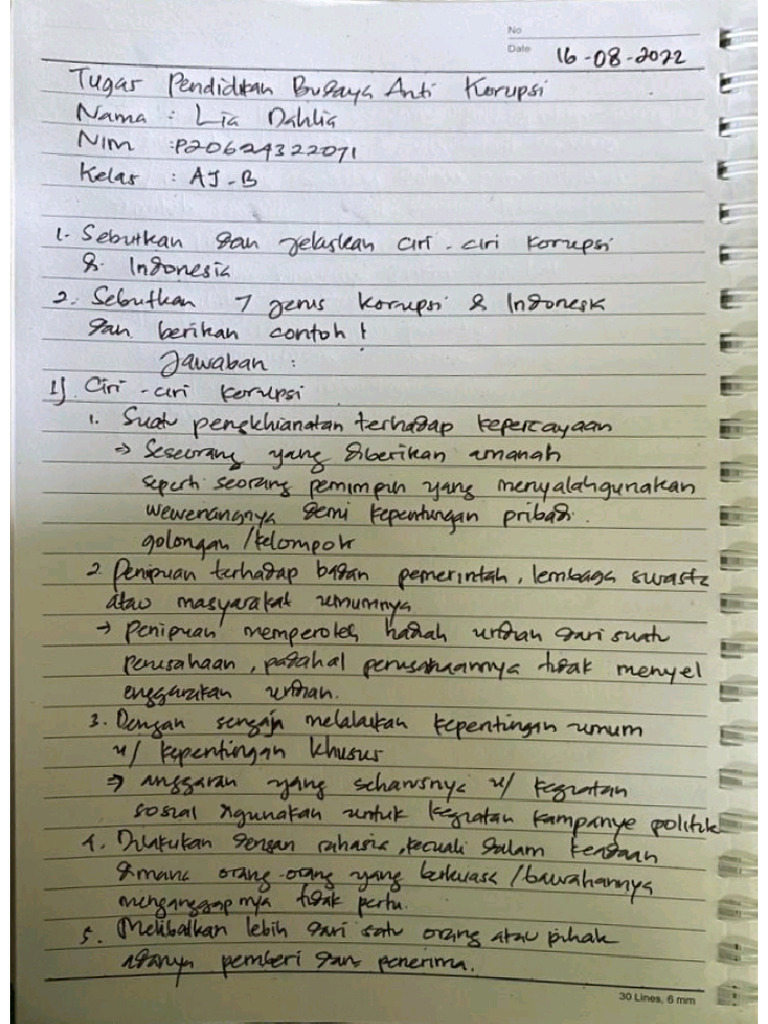 No
Date 16-08-2022
Tugas Pendidikan Budaya Anti Korupsi
Nama : Lia Dahlia
NIM : P20624322071
Kelas : AJ-B
1. Sebutkan dan jelaskan ciri-ciri korupsi
di Indonesia
2. Sebutkan 7 jenis korupsi di Indonesia
dan berikan contoh!
Jawaban :
1) Ciri-ciri korupsi
1. Suatu pengkhianatan terhadap kepercayaan
→ Seseorang yang diberikan amanah
seperti seorang pemimpin yang menyalahgunakan
wewenangnya demi kepentungan pribadi.
golongan/kelompok
2. Penipuan terhadap badan pemerintah, lembaga swasta
atau masyarakat umumnya
→ Penipuan memperoleh hadiah undian dari suatu
perusahaan, padahal perusahaannya tidak menyel
enggarakan undian.
3. Dengan sengaja melalaikan kepentingan umum
u/ kepentingan khusus
⇒ anggaran yang seharusnya u/ kegiatan
sosial digunakan untuk kegiatan kampanye politik
4. Dilakukan dengan rahasia, kecuali dalam keadaan
dimana orang-orang yang berkuasa/bawahannya
menganggapnya tidak perlu.
5. Melibatkan lebih dari satu orang atau pihak
adanya pemberi dan penerima.
30 Lines, 6 mm